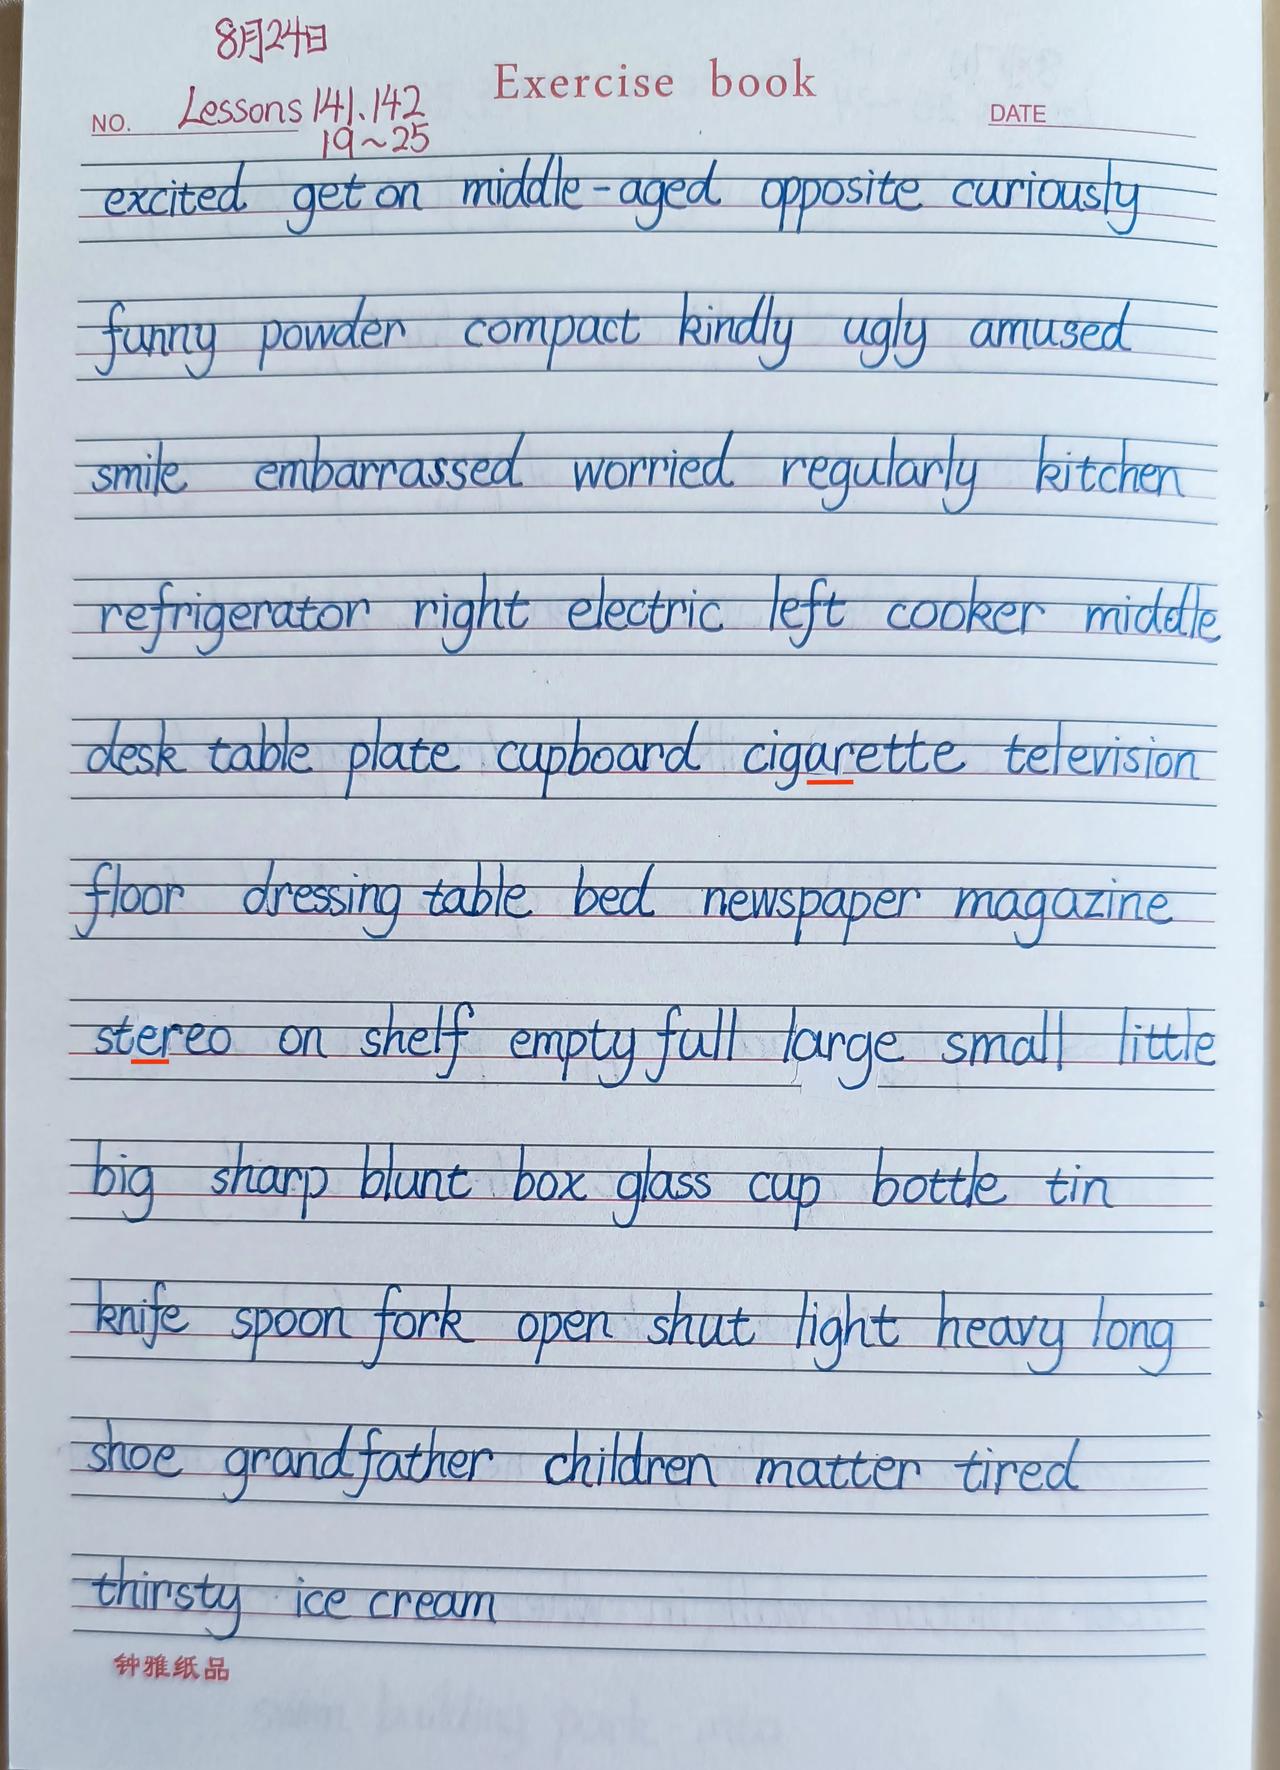 8月24日
Exercise book
NO. Lessons 141.142
DATE
19~25
excited get on middle-aged opposite curiously
funny powder compact kindly ugly amused
smile embarrassed worried regularly kitchen
refrigerator right electric left cooker middle
desk table plate cupboard cigarette television
floor dressing table bed newspaper magazine
stereo on shelf empty full large small little
big sharp blunt box glass cup bottle tin
knife spoon fork open shut light heavy long
shoe grandfather children matter tired
thirsty ice cream
钟雅纸品